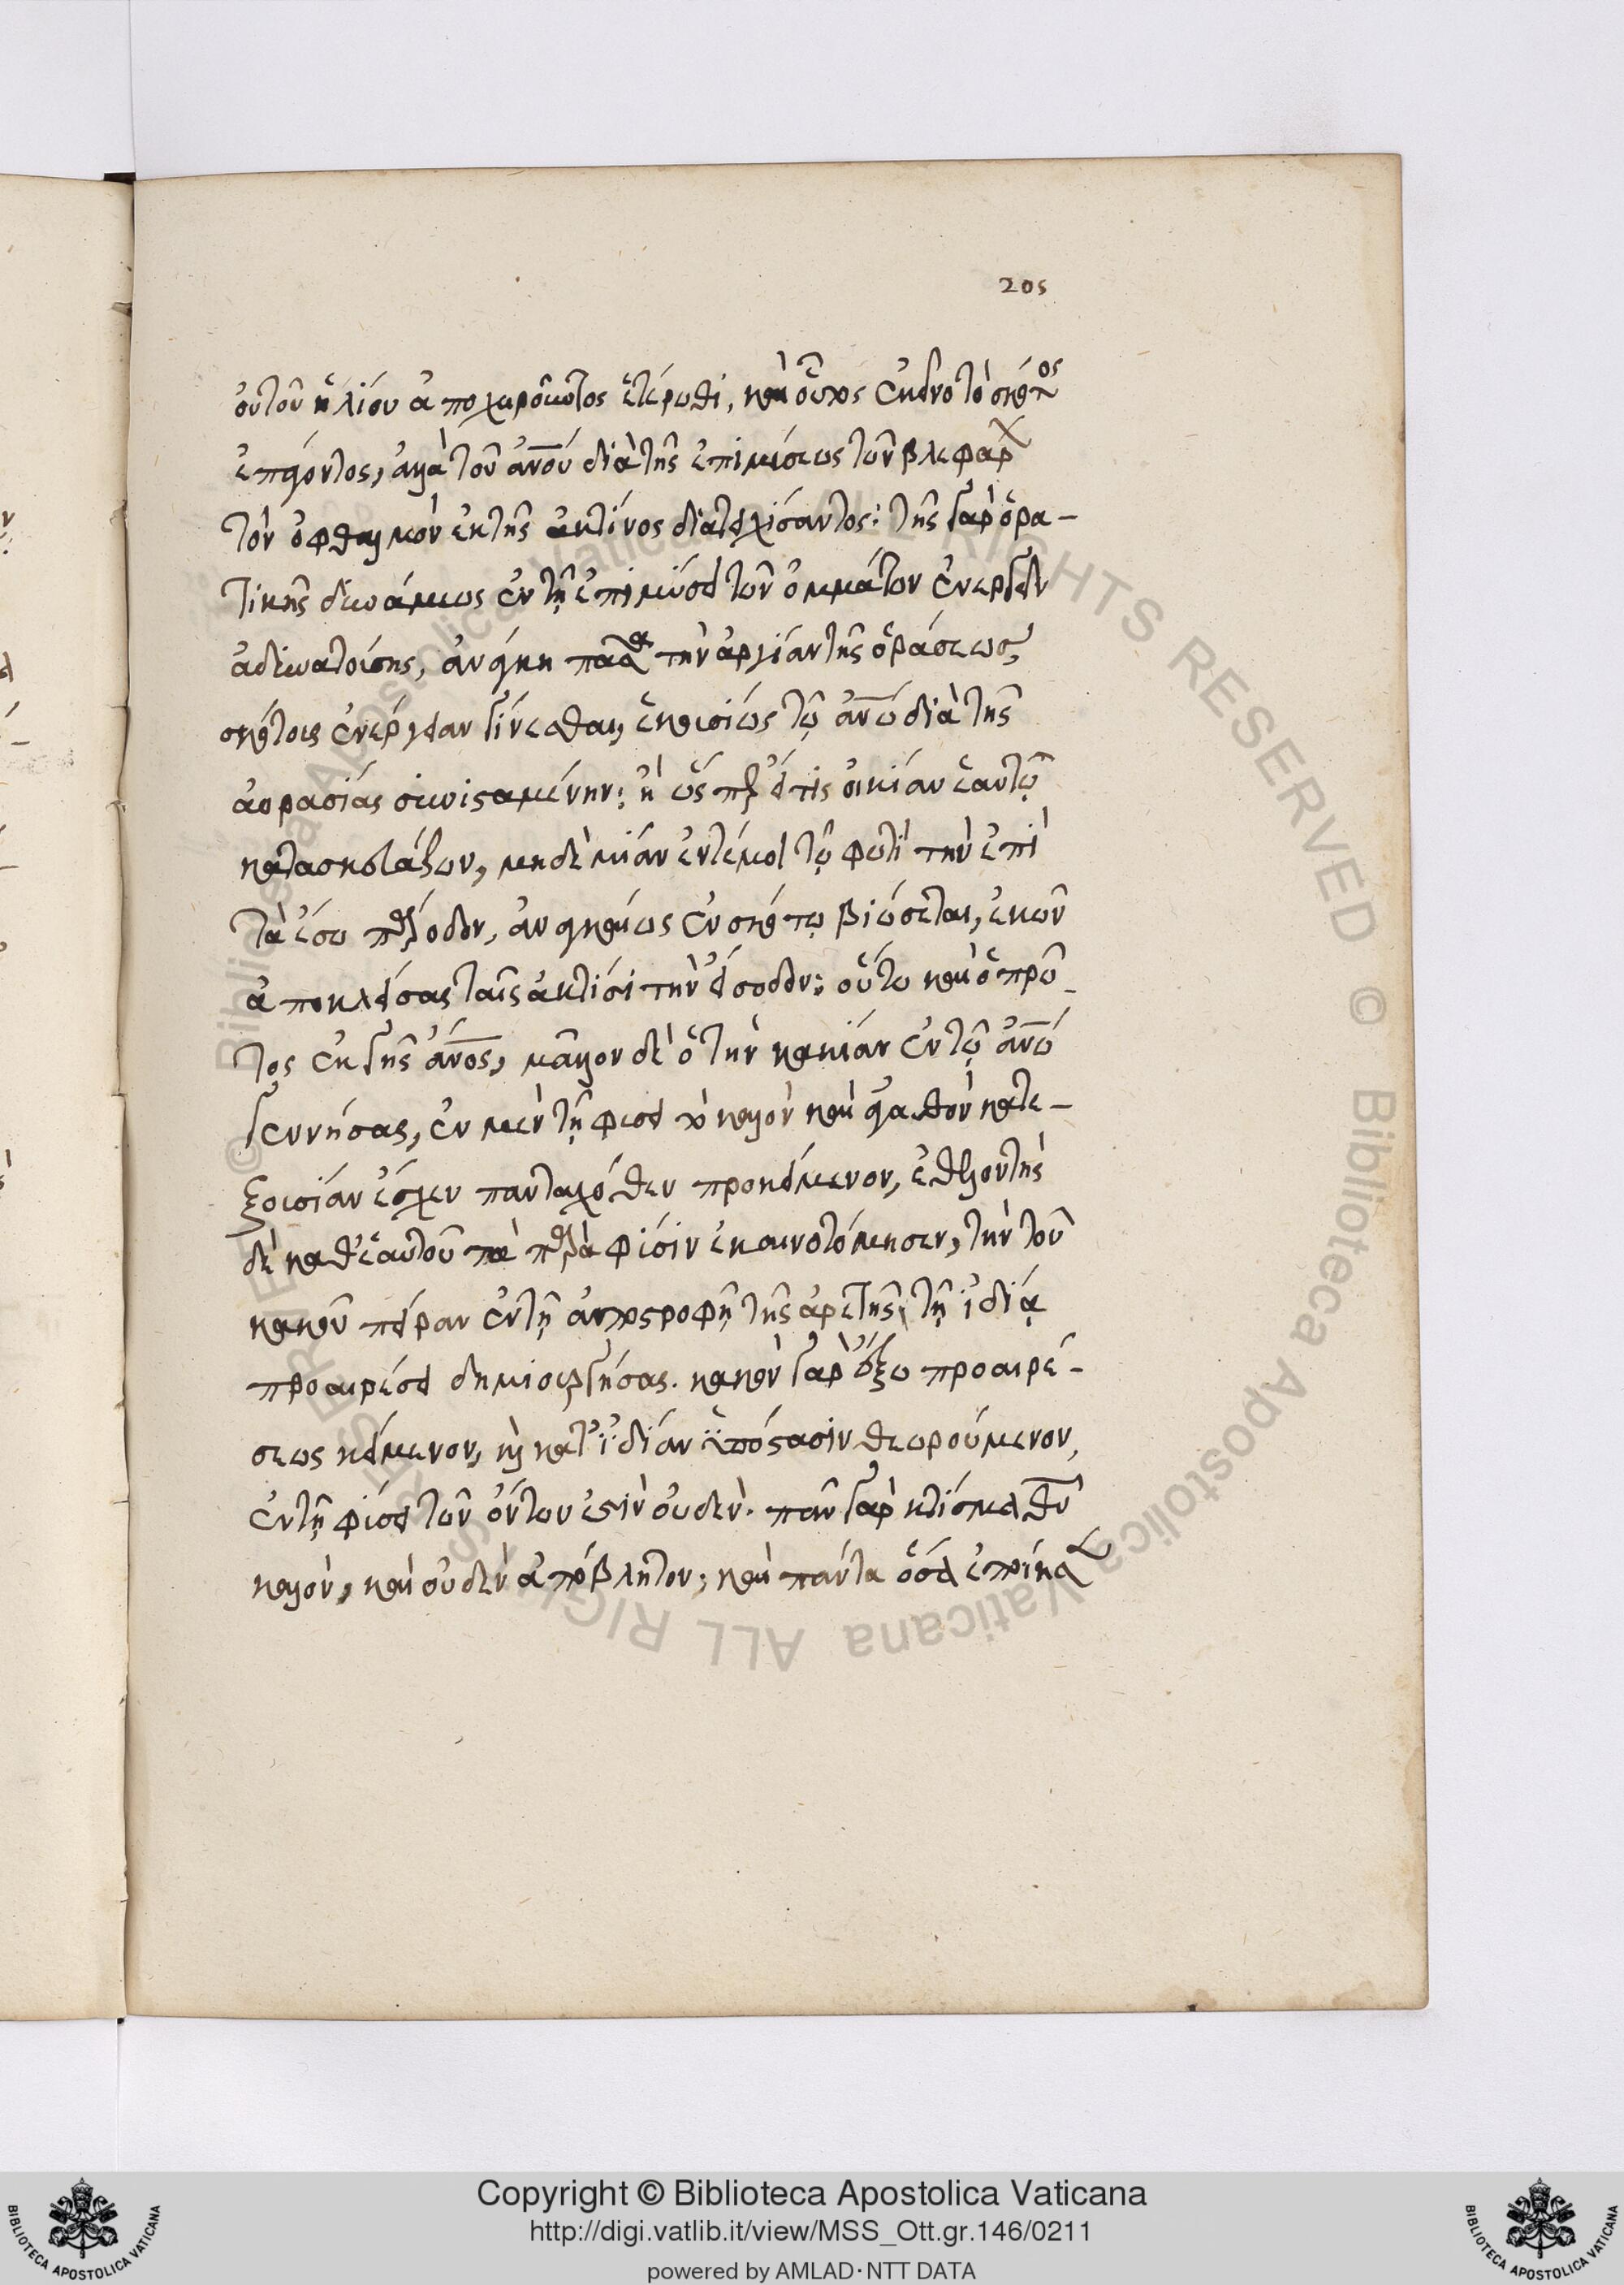 205
οὐ τοῦ ἡλίου ἀποχωροῦντος ἑτέρωθι, καὶ οὕτως ἐκεῖνο τὸ σκότος
ἐπάγοντος, ἀλλὰ τοῦ ἀνου διὰ τῆς ἐπιμύσεως τῶν βλεφάρων
τὸν ὀφθαλμὸν ἐκ τῆς ἀκτίνος διατειχίσαντος· τῆς γὰρ ὁρα-
τικῆς δυνάμεως ἐν τῇ ἐπιμύσει τῶν ὀμμάτων ἐνεργεῖν
ἀδυνατούσης, ἀνάγκη πᾶσα τὴν ἀργίαν τῆς ὁράσεως,
σκότους ἐνέργειαν γίνεσθαι, ἑκουσίως τῷ ἀνω διὰ τῆς
ἀορασίας συνισταμένην· ἢ ὥσπερ εἴ τις οἰκίαν ἑαυτῷ
κατασκευάζων, μηδεμίαν ἐντέμοι τῷ φωτὶ τὴν ἐπὶ
τὰ ἔσω πάροδον, ἀναγκαίως ἐν σκότῳ βιώσεται, ἑκὼν
ἀποκλείσας ταῖς ἀκτῖσι τὴν εἴσοδον· οὕτω καὶ ὁ πρῶ-
τος ἐκ γῆς ἀνος, μᾶλλον δὲ ὁ τὴν κακίαν ἐν τῷ ἀνω
γεννήσας, ἐν μὲν τῇ φύσει τὸ καλὸν καὶ ἀγαθὸν κατε-
ξουσίαν ἔσχεν πανταχόθεν προκείμενον, ἐθελοντὴς
δὲ καθ' ἑαυτοῦ τὰ παρὰ φύσιν ἐκαινοτόμησεν, τὴν τοῦ
κακοῦ πεῖραν ἐν τῇ ἀποστροφῇ τῆς ἀρετῆς, τῇ ἰδίᾳ
προαιρέσει δημιουργήσας. κακὸν γὰρ ἔξω προαιρέ-
σεως κείμενον, καὶ κατ' ἰδίαν ὑπόστασιν θεωρούμενον,
ἐν τῇ φύσει τῶν ὄντων ἐστὶν οὐδέν. πᾶν γὰρ κτίσμα θυ
καλὸν, καὶ οὐδὲν ἀπόβλητον· καὶ πάντα ὅσα ἐποίησεν
Copyright © Biblioteca Apostolica Vaticana
http://digi.vatlib.it/view/MSS_Ott.gr.146/0211
powered by AMLAD·NTT DATA